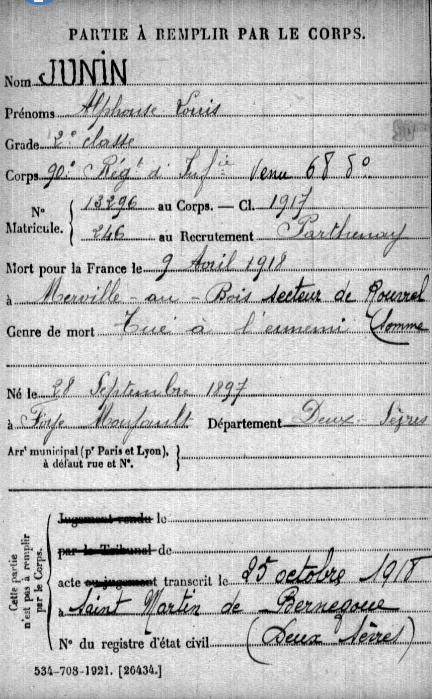 PARTIE À REMPLIR PAR LE CORPS.
Nom JUNIN
Prénoms Alphonse Louis
Grade 2e classe
Corps 90e Régt d'Infie Venu 68 8°
N° Matricule. { 13296 au Corps. — Cl. 1917
246 au Recrutement Parthenay
Mort pour la France le 9 Avril 1918
à Merville-au-Bois secteur de Rouvrel
Genre de mort Tué à l'ennemi (Somme
Né le 28 Septembre 1897
à Département Deux-Sèvres
Arrt municipal (pr Paris et Lyon), }
à défaut rue et N°.
Cette partie n'est pas à remplir par le Corps.
Jugement rendu le
par le Tribunal de
acte ou jugement transcrit le 25 octobre 1918
à Saint Martin de Bernegoue
N° du registre d'état civil (Deux Sèvres)
534-708-1921. [26434.]